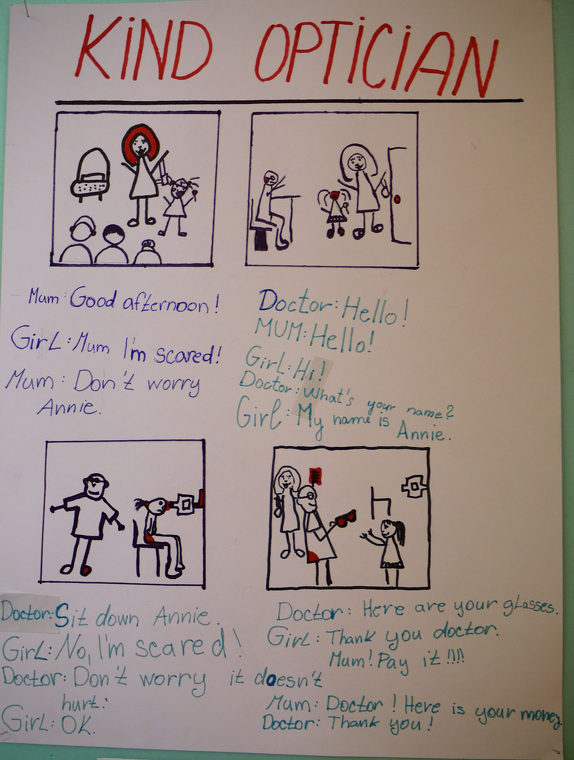 KiND OPTiCiAN
Mum: Good afternoon!
Girl: Mum I'm scared!
Mum: Don't worry
Annie.
Doctor: Hello!
MUM: Hello!
Girl: Hi!
Doctor: What's your name?
Girl: My name is Annie.
Doctor: Sit down Annie.
Girl: No, I'm scared!
Doctor: Don't worry it doesn't
hurt.
Girl: OK.
Doctor: Here are your glasses.
Girl: Thank you doctor.
Mum! Pay it!!!!
Mum: Doctor! Here is your money
Doctor: Thank you!